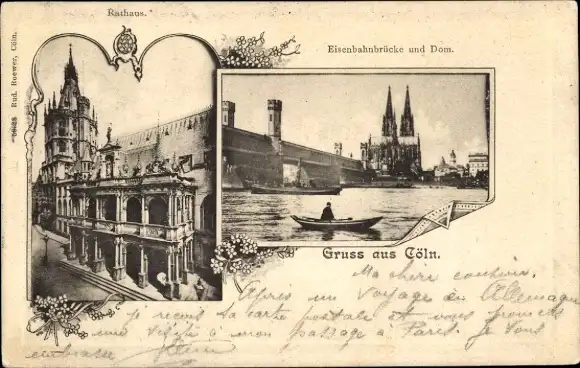 Rathaus.
Eisenbahnbrücke und Dom.
Rud. Roewer, Cöln.
Gruss aus Cöln.
Ma chère cousine.
Après un voyage en Allemagne
je reçois ta carte postale et vous promets
une visite à mon passage à Paris. je vous
embrasse